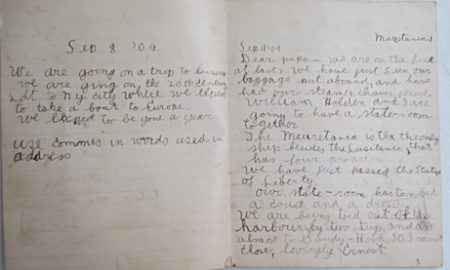 Sep 8 '09
We are going on a trip to
we are going on, the 20th
to N.Y. city while we
to take a boat to Europe.
We to be gone a year
use commas in words used in
address
Mauretania
Sep '09
Dear papa — we are on the boat
at last. We have just seen our
baggage put aboard, and have
had our steamer chairs placed.
William Holden and I are
going to have a state-room
together
The Mauretania is the only
ship besides the Lusitania, that
has four
We have just passed the Statue
of Liberty
Our state-room has two beds
a couch and a
We are being towed out of the
harbour by two tugs and are
to Sandy-Hook SO I must
close, lovingly Ernest